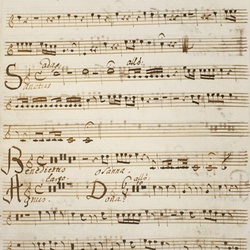 Ado. allo.
Sanctus
Benedictus osanna.
Largo allo.
Agnus Dona